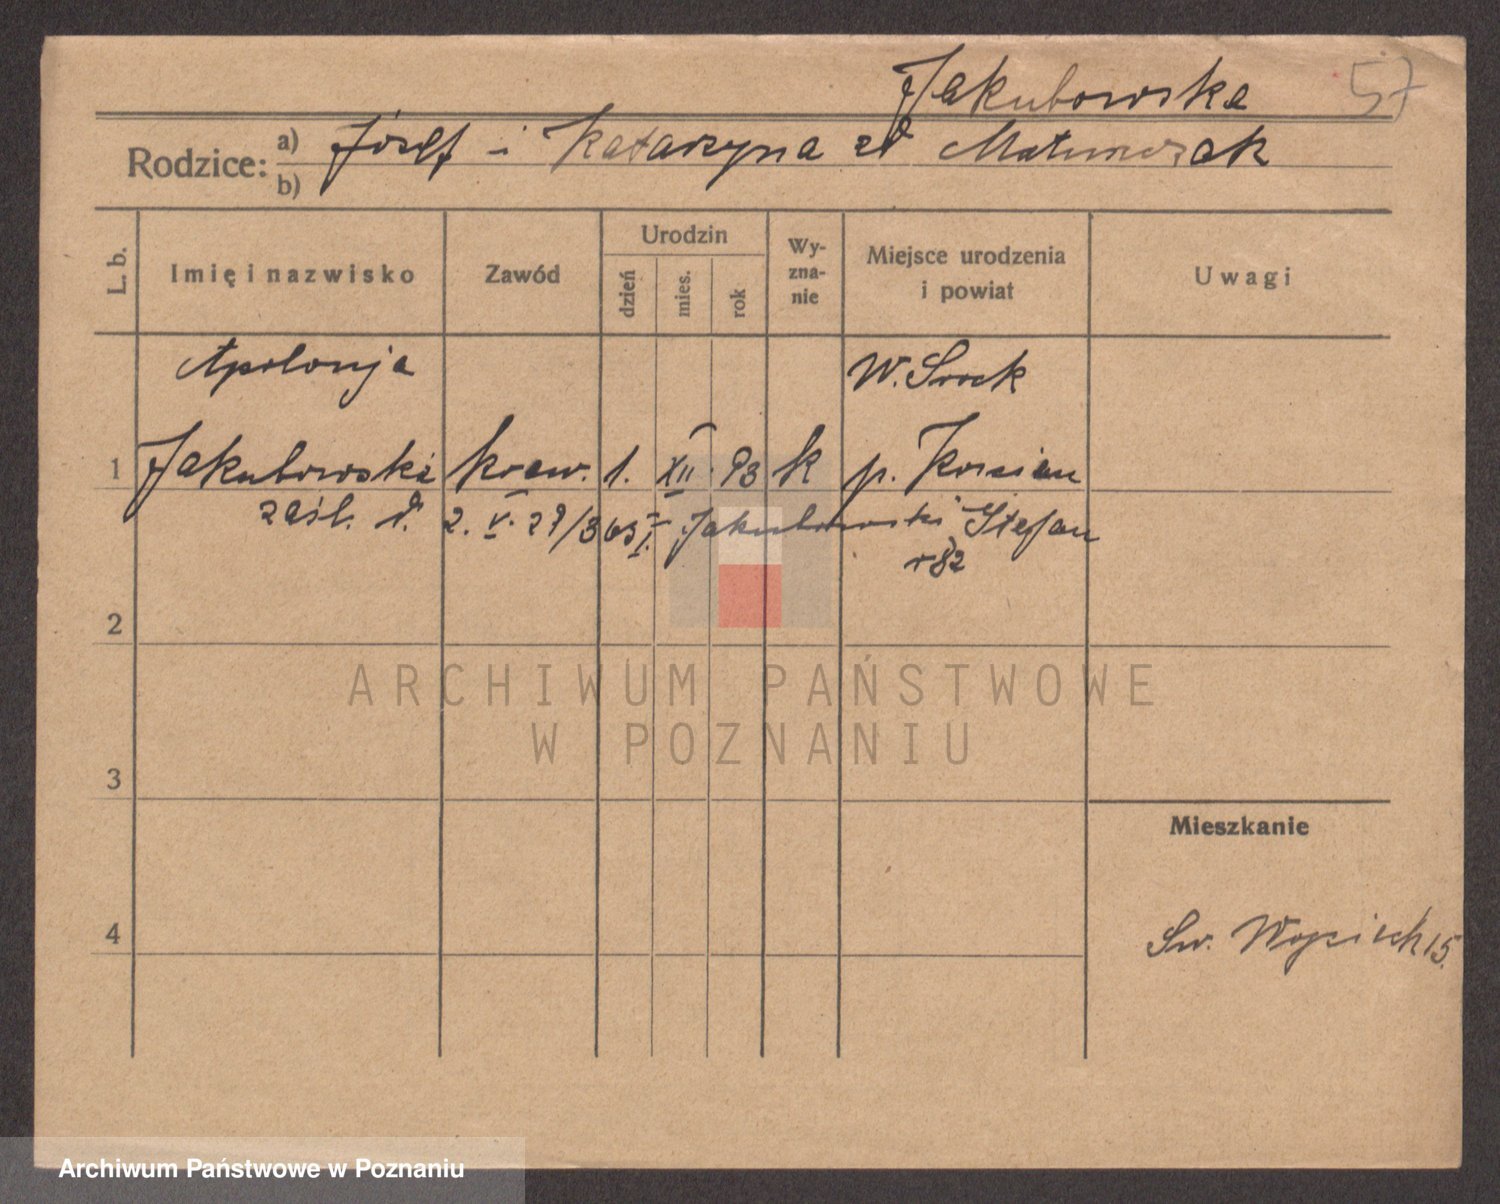 Jakubowska 57
Rodzice: a) Józef i Katarzyna zd Matuszczak
b)
L. b. Imię i nazwisko Zawód Urodzin dzień mies. rok Wyznanie Miejsce urodzenia i powiat Uwagi
Apolonja W. Srock
1 Jakubowska kraw. 1. XII. 93 k p. Kościan
zaśl. d. 2. V. 27/363 I. Jakubowski Stefan
r 82
2
ARCHIWUM PAŃSTWOWE
W POZNANIU
3
Mieszkanie
4 Św. Wojciech 15.
Archiwum Państwowe w Poznaniu